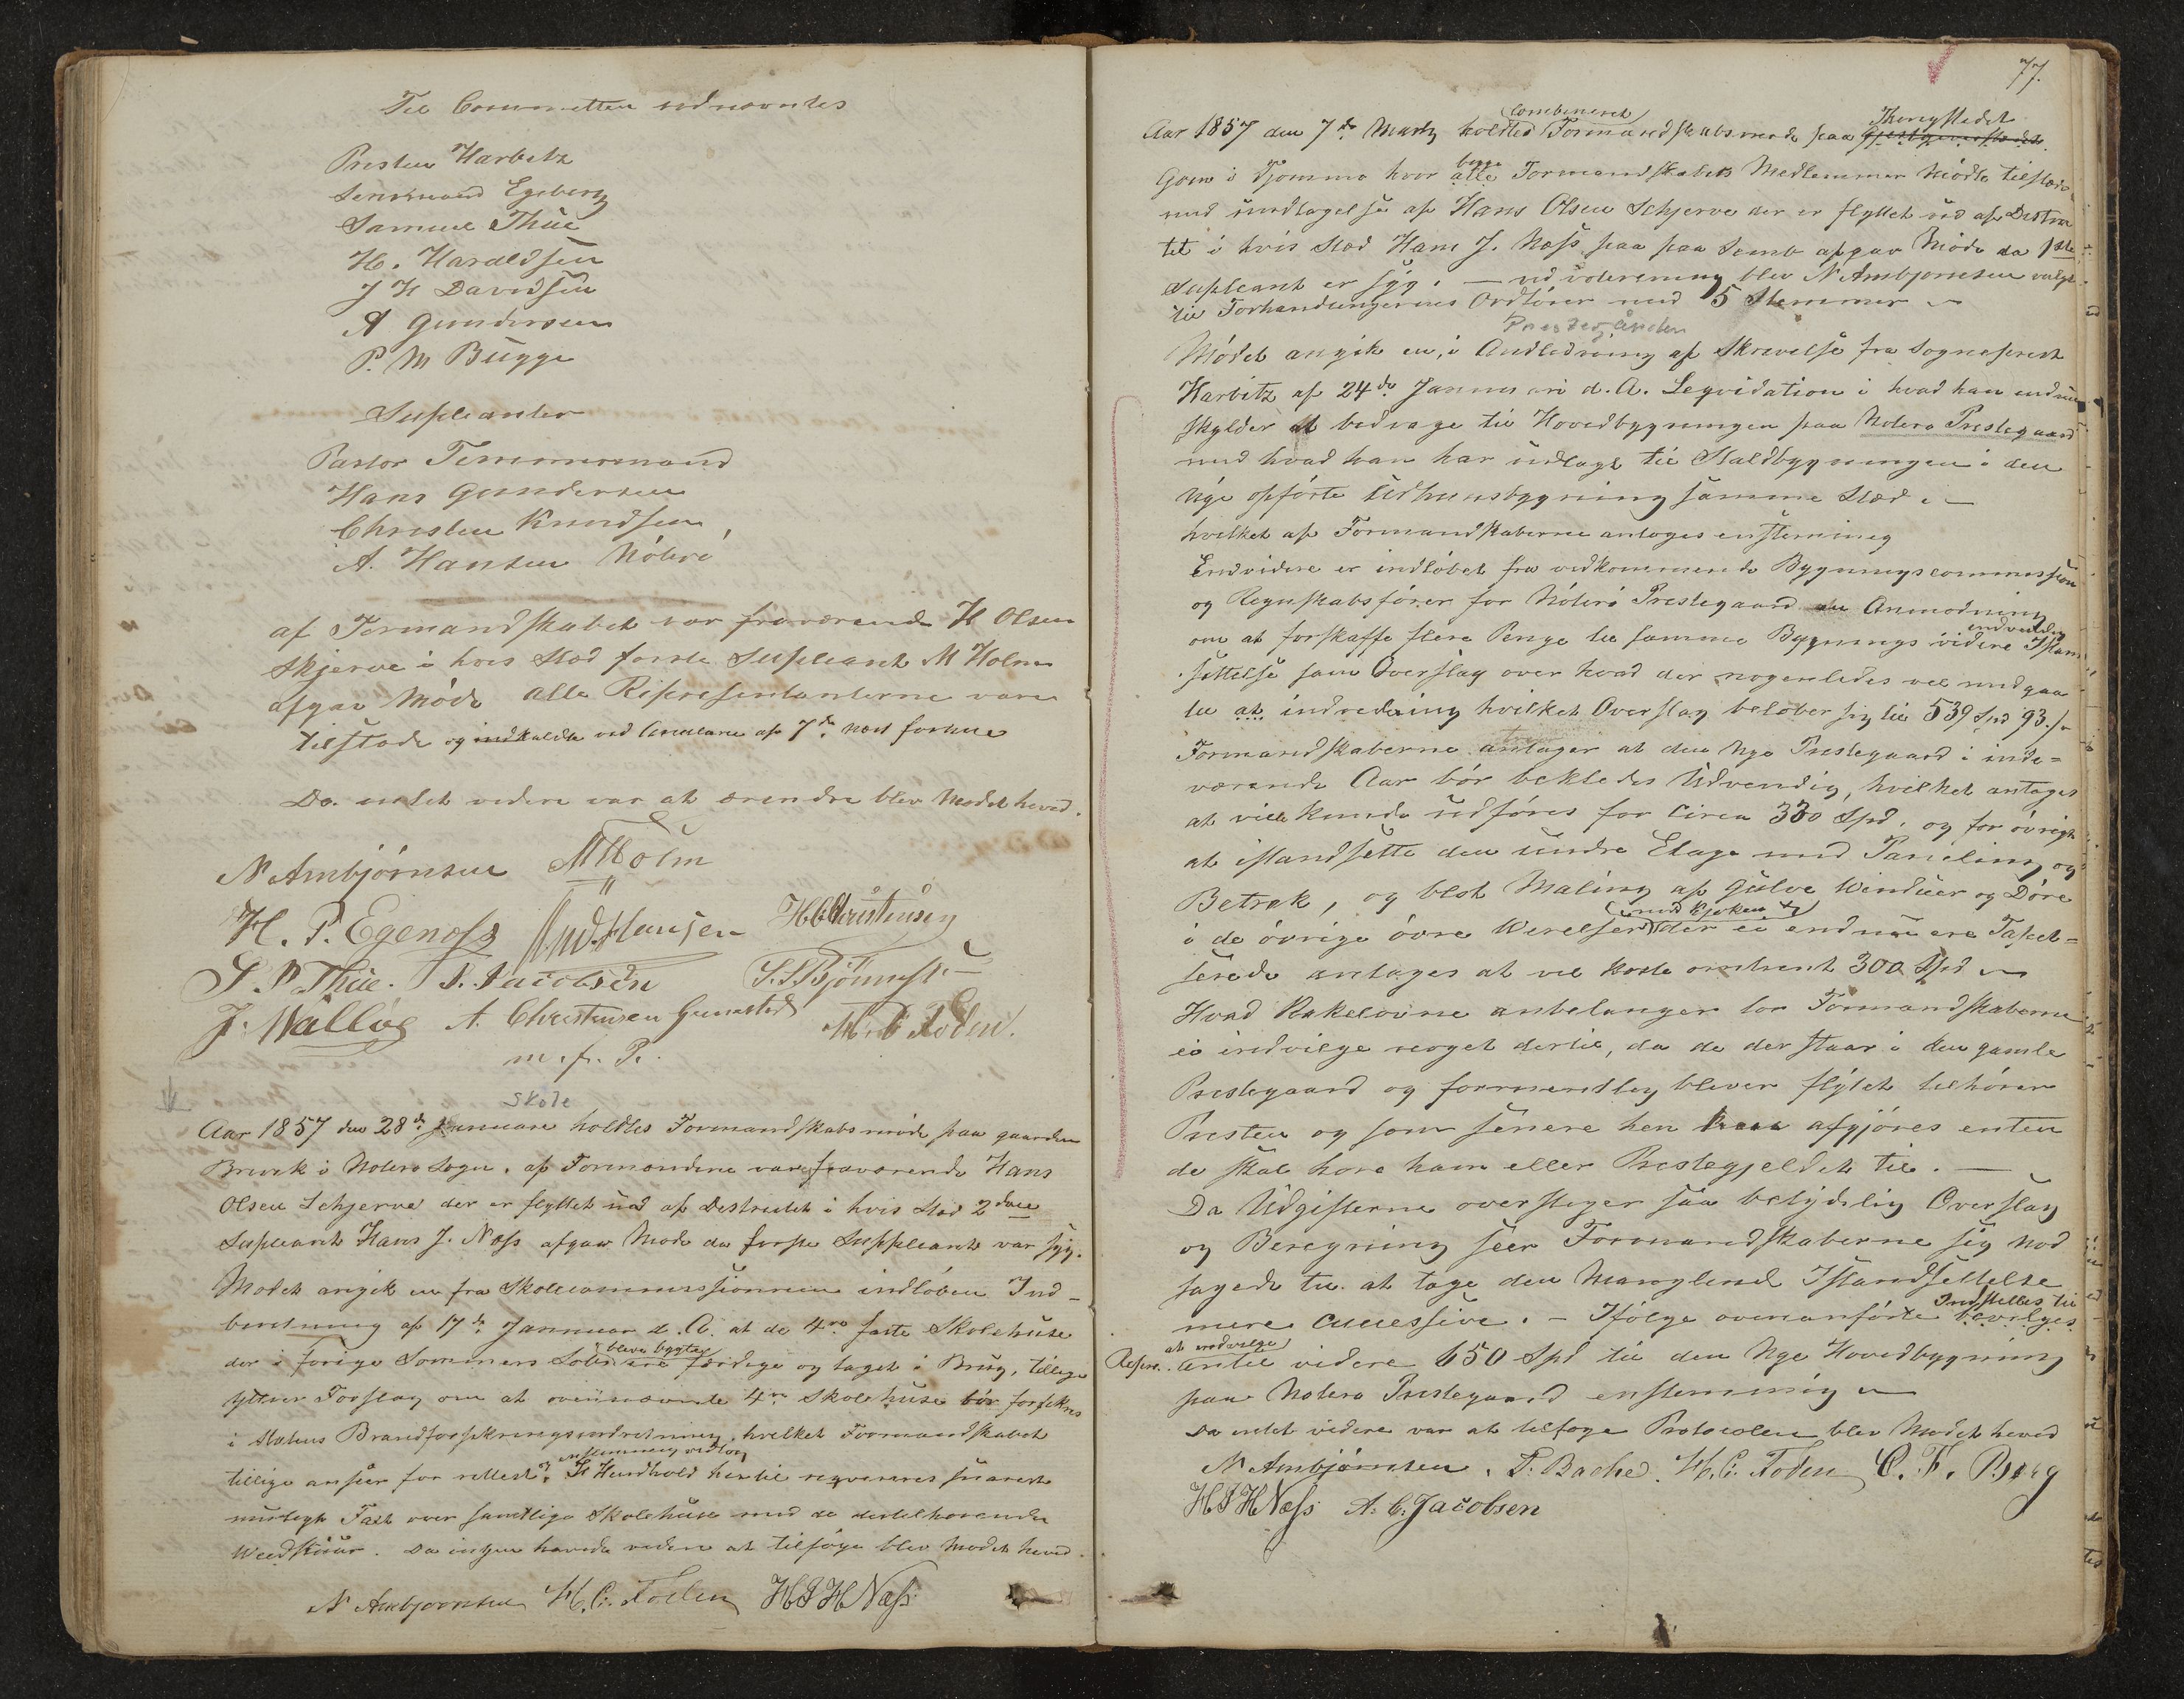 Til Committeen udnævntes
Presten Harbitz
Ferdinand Egeberg
Samuel Thue
H. Haraldsen
J H Davidsen
A Gundersen
P. M Bugge
Supleanter
Pastor Temmermand
Hans Gundersen
Christen Knudsen,
A. Hansen Nóteró
af Formandskabet var fraværende H Olsen
Skjerve i hvis Sted förste Supleant M Holm
afgav Móde alle Representanterne vare
tilstede og indkaldte ved Circulaire af 7de
Da intet videre var at erendre blev Modet heved.
N Ambjórnsen M Holm
H. P. Egenæss And. Hansen H C Christensen
S. P Thue. S. Jacobsen
J. Wallóe A. Christensen Gunnestad H. C Foden.
m. f. P.
Skole
Aar 1857 den 28de Januare holdtes Formandskabsmóde paa gaarden
Brevek i Noterø Sogn. af Formændene vare fraværende Hans
Olsen Schjerve der er flyttet ud af Destrictet i hvis Sted 2den
Supleant Hans J. Næss afgav Mode da første Suppleant var syg.
Modet angik en fra Skolecommissionnen indlöben Ind-
beretning af 17de Januar d. A. at de 4re faste Skolehuse
der i forige Sommers Lob bleve bygte ere færdige og taget i Brug, tillige
yttrer Forslag om at ovennævnte 4re Skolehuse bör forsikres
i Statens Brandforsikringsindretning, hvilket Formandskabet
tillige anseer for rettest og enstemmig vedtog. I Henhold hertil reqvereres snarest
muligt Taxt over samtlige Skolehuse med de dertilhorende
Weedskuur. Da intet havde videre at tilföye blev Modet heved.
N Ambjoornsen H. C. Foden H J H Næss
77.
Aar 1857 den 7de Marts holdtes Combineret Formandskabsmøde paa Thingstedet
Goen i Tjømmø hvor begge Formandskabets Medlemmer Mödte tilstede
med undtagelse af Hans Olsen Schjerve der er flyttet ud af Distric
tet i hvis Sted Hans J. Næss paa Semb afgav Móde da 1ste
Supleant er syg. — ved voterening blev N Ambjornsen valgt
til Forhandlingernes Ordförer med 5 Stemmer
Prestegården
Módet angik en, i Andledning af Skrivelse fra Sogneprest
Harbitz af 24de Januari d. A. Leqvidation i hvad han endnu
skylder at bedrage til Hovedbygningen paa Notero Prestegaard
med hvad han har udlagt til Staldbygningen i den
Nye opförte Udhuusbygning samme Sted. —
hvilket af Formandskaberne antoges enstemmig
Endvidere er indlöbet fra vedkommende Bygningscommission
og Regnskabsförer for Nóteró Prestegaard en Anmodning
om at forskaffe flere Penge til samme Bygnings videre indvendig Istand
settelse sam Overslag over hvad der nogenledes vel medgaar
til at indredning hvilket Overslag belöber sig til 539 Spd 93. s
Formandskaberne antager at den Nye Prestegaard i inde-
værende Aar bör bekledes Udvendig, hvilket antages
at ville kunde udföres for Circa 330 Spd. og for övrigt
at istandsette den undre Etage med Paneling og
Betrek, og blot Maling af Gulve Winduer og Döre
i de óvrige óvre Werelser (med Kjøken) der ei endnu ere Tapet-
serede antages at vel koste omtrent 300 Spd
Hvad Kakelovne anbelanger tor Formandskaberne
ei indvilge noget dertil, da de der staar i den gamle
Prestegaard og formentlig bliver flytet tilhörer
Presten og som senere hen kan afgjöres enten
de skal höre ham eller Prestegjeldet til. —
Da Udgifterne overstiger saa betydelig Overslag
og Beregning seer Formandskaberne sig nod
sagede til at tage den Manglende Istandsettelse
mere successive. – Ifölge ovenanförte Indstilles til bevilges
Repr. at indvilge indtil videre 650 Spd til den Nye Hovedbygning
paa Notero Prestegaard enstemmig
Da intet videre var at tilföye Protocolen blev Modet heved
N Ambjörnsen. P. Bache. H. C. Foden C. F. Berg
H J H Næss A. C. Jacobsen